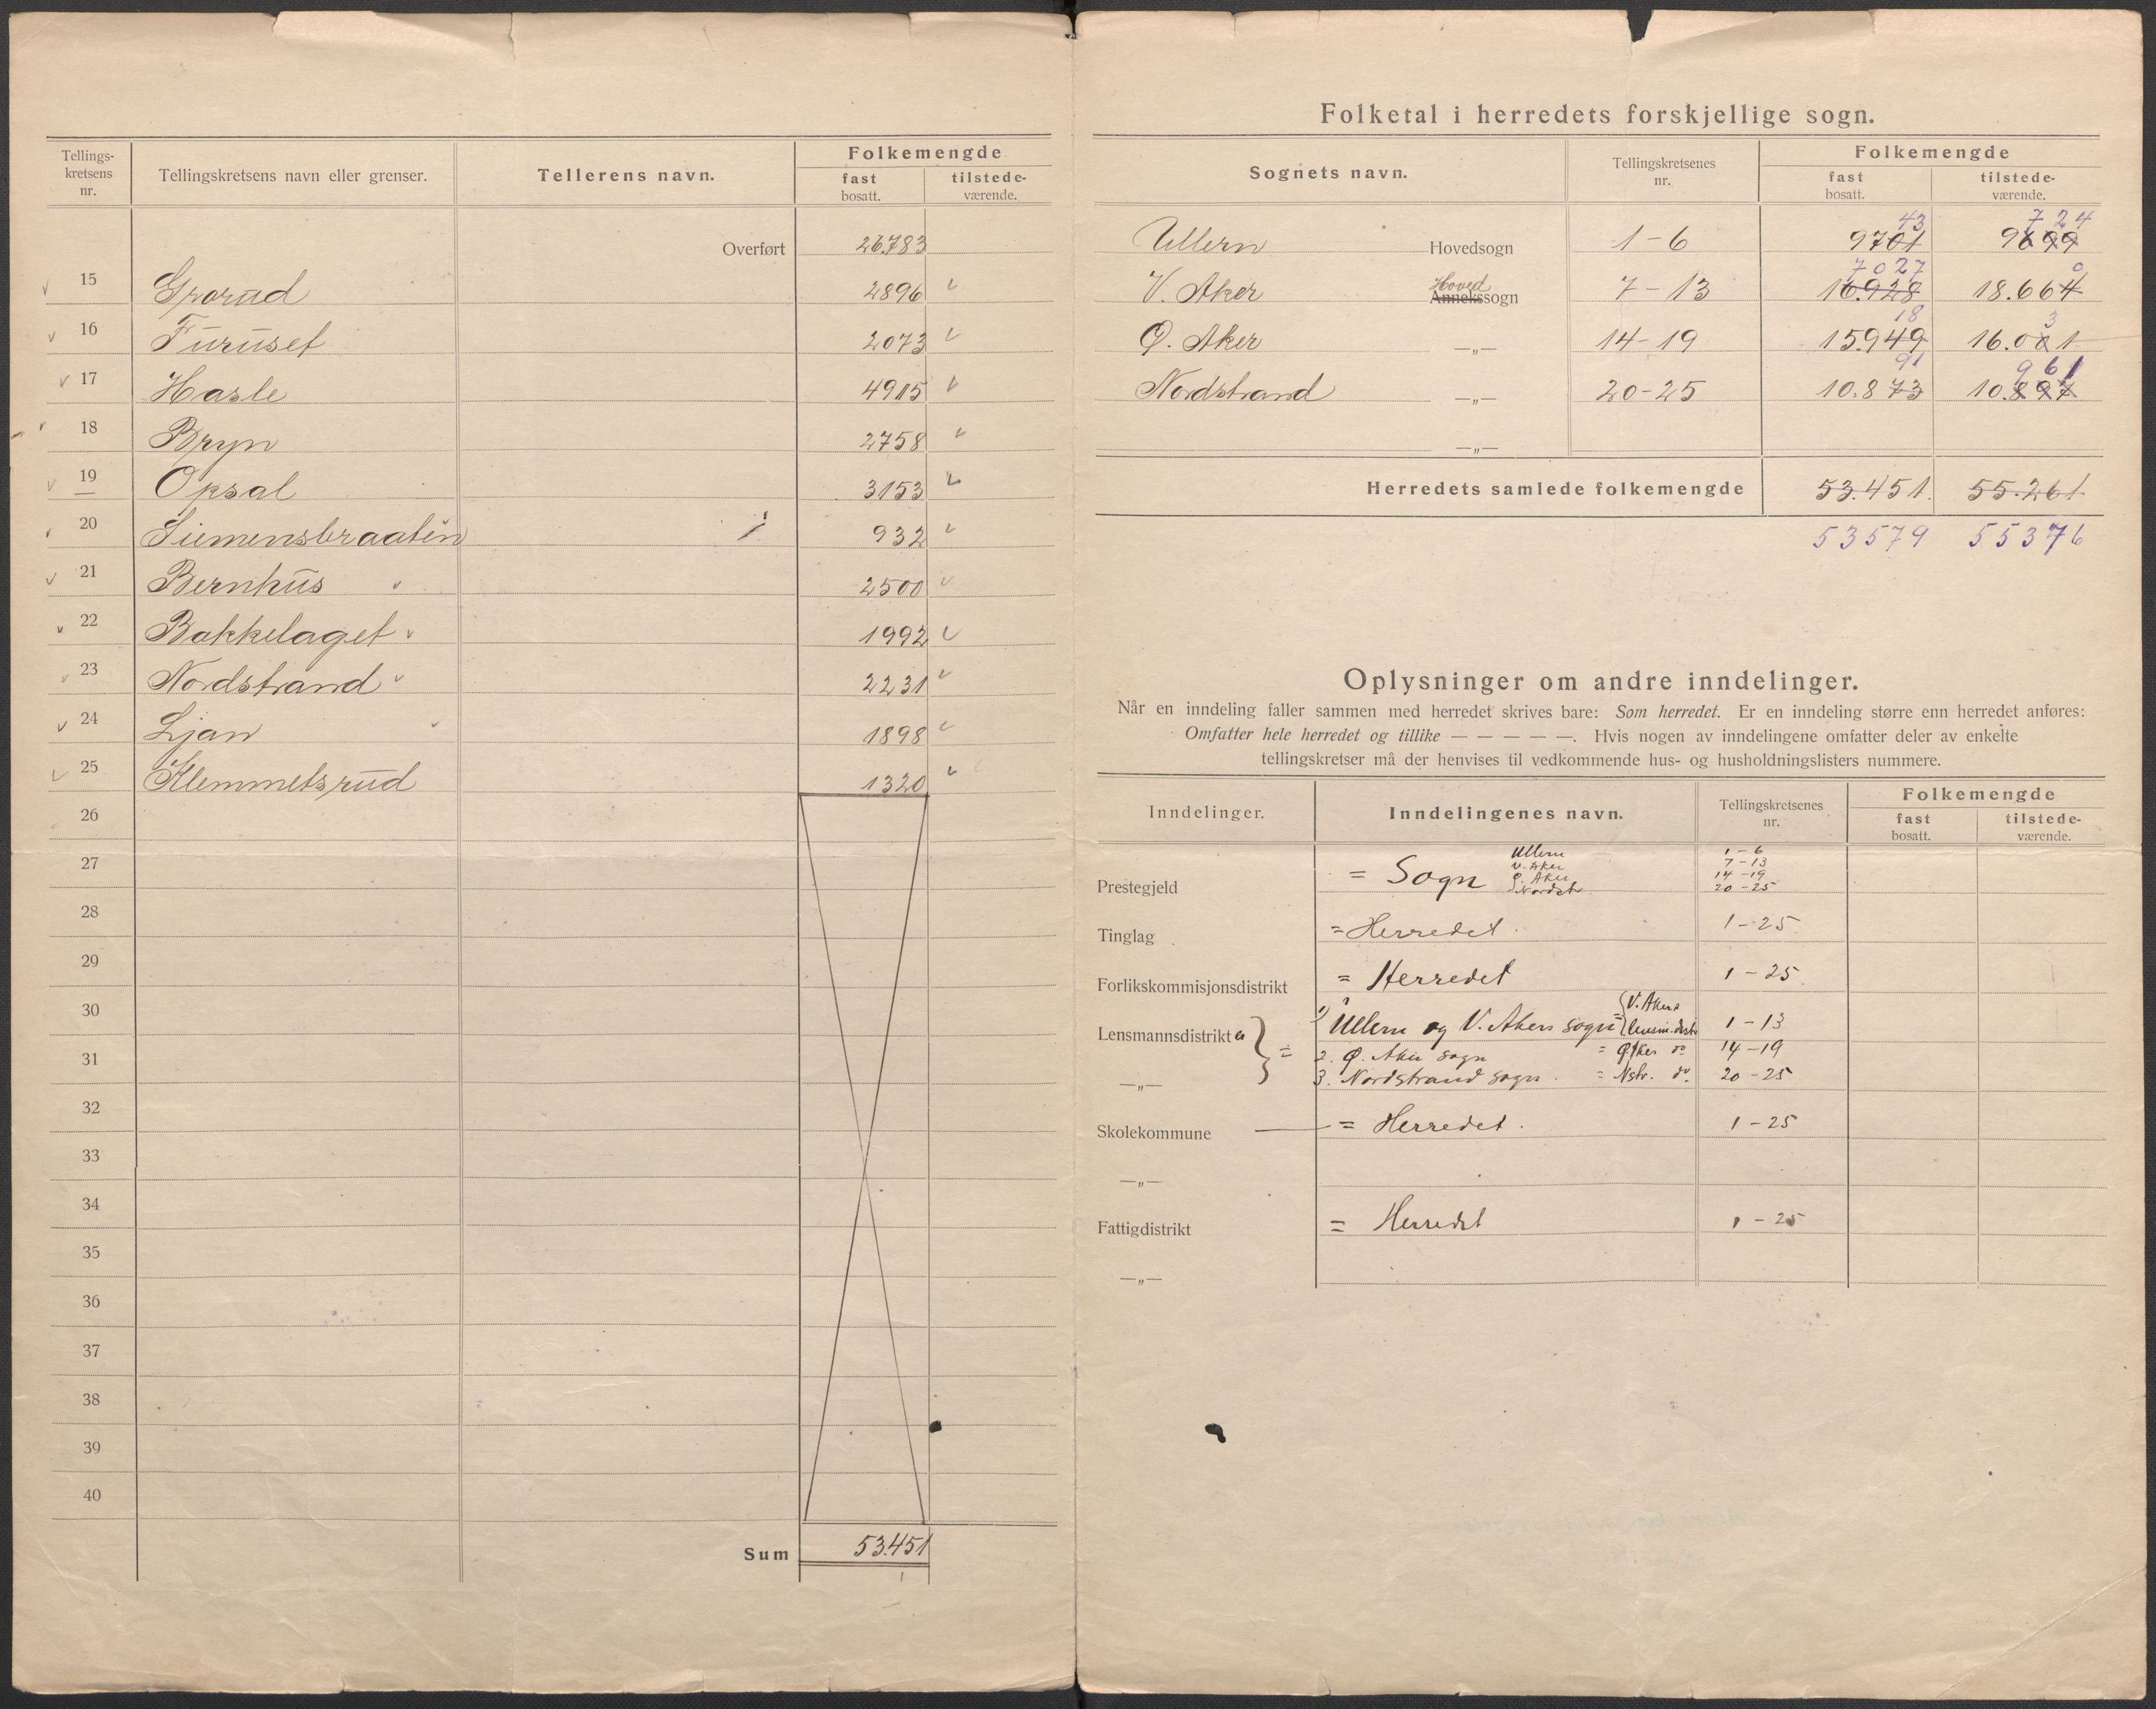 Tellings-
kretsens
nr.
Tellingskretsens navn eller grenser.
Tellerens navn.
Folkemengde
fast
bosatt.
tilstede-
værende.
Overført 26.783
15 Grorud 2896
16 Furuset 2073
17 Hasle 4915
18 Bryn 2758
19 Opsal 3153
20 Simensbraaten 932
21 Bernhus 2500
22 Bækkelaget 1992
23 Nordstrand 2231
24 Ljan 1898
25 Klemmetsrud 1320
26
27
28
29
30
31
32
33
34
35
36
37
38
39
40
Sum 53.451
Folketal i herredets forskjellige sogn.
Sognets navn.
Tellingskretsenes
nr.
Folkemengde
fast
bosatt.
tilstede-
værende.
43 7 24
Ullern Hovedsogn 1-6 9701 9699
Hoved 7027 0
V. Aker Annekssogn 7-13 16.928 18.664
18 3
Ø. Aker —„— 14-19 15.949 16.001
91 961
Nordstrand —„— 20-25 10.873 10.897
—„—
Herredets samlede folkemengde 53.451. 55.261
53579 55376
Oplysninger om andre inndelinger.
Når en inndeling faller sammen med herredet skrives bare: Som herredet. Er en inndeling større enn herredet anføres:
Omfatter hele herredet og tillike — — — — —. Hvis nogen av inndelingene omfatter deler av enkelte
tellingskretser må der henvises til vedkommende hus- og husholdningslisters nummere.
Inndelinger.
Inndelingenes navn.
Tellingskretsenes
nr.
Folkemengde
fast
bosatt.
tilstede-
værende.
Ullern 1-6
V. Aker 7-13
Prestegjeld = Sogn Ø. Aker 14-19
Nordstr 20-25
Tinglag = Herredet. 1-25
Forlikskommisjonsdistrikt = Herredet 1-25
V. Akers
Lensmannsdistrikt er = 1) Ullern og V. Akers sogn = lensm.distr 1-13
2. Ø. Aker sogn = Ø. Aker do 14-19
—„— 3. Nordstrand sogn. = Nstr. do. 20-25
Skolekommune = Herredet. 1-25
—„—
Fattigdistrikt = Herredet 1-25
—„—